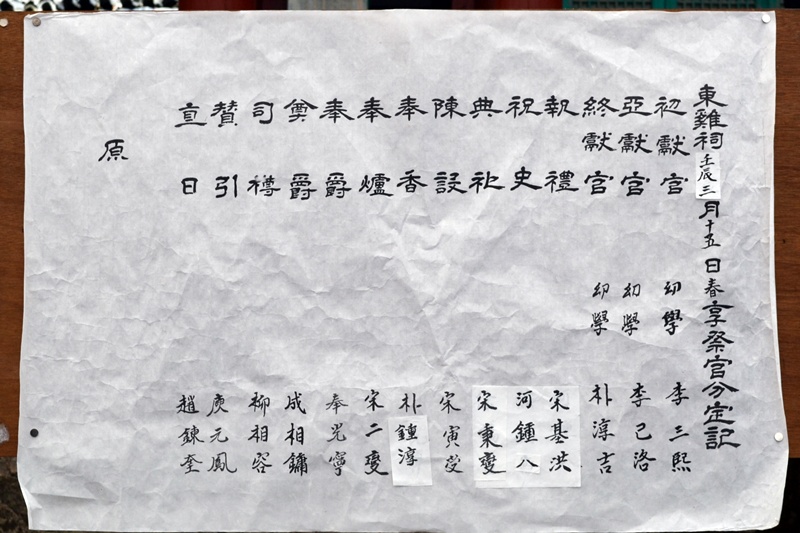 東雞祠壬辰三月十五日春享祭官分定記
初獻官 幼學 李三熙
亞獻官 幼學 李己洛
終獻官 幼學 朴淳吉
執禮 宋基洪
祝史 河鍾八
典祀 宋東燮
陳設 宋寅燮
奉香 朴鍾淳
奉爐 宋二燮
奉爵 奉光寧
奠爵 成相鏞
司樽 柳相容
贊引 庾元鳳
直日 趙鍊奎
原